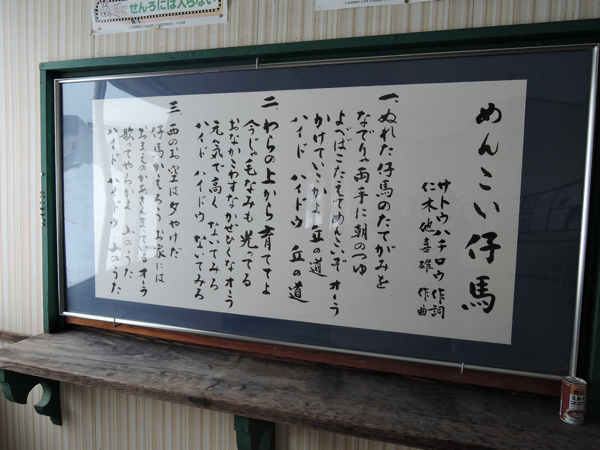 せんろには入らない
めんこい仔馬
サトウハチロウ 作詞
仁木他喜雄 作曲
一、ぬれた仔馬のたてがみを
なでりゃ両手に朝のつゆ
よべばこたえてめんこいぞ オーラ
かけていこかよ 丘の道
ハイド ハイドウ 丘の道
二、わらの上から育ててよ
今じゃ毛なみも光ってる
おなかこわすなかぜひくな オーラ
元気で高く ないてみろ
ハイド ハイドウ ないてみろ
三、西のお空は夕やけだ
仔馬かえろうお家には
おまえのかあさんまっている オーラ
歌ってやろかよ 山のうた
ハイド ハイドウ 山のうた